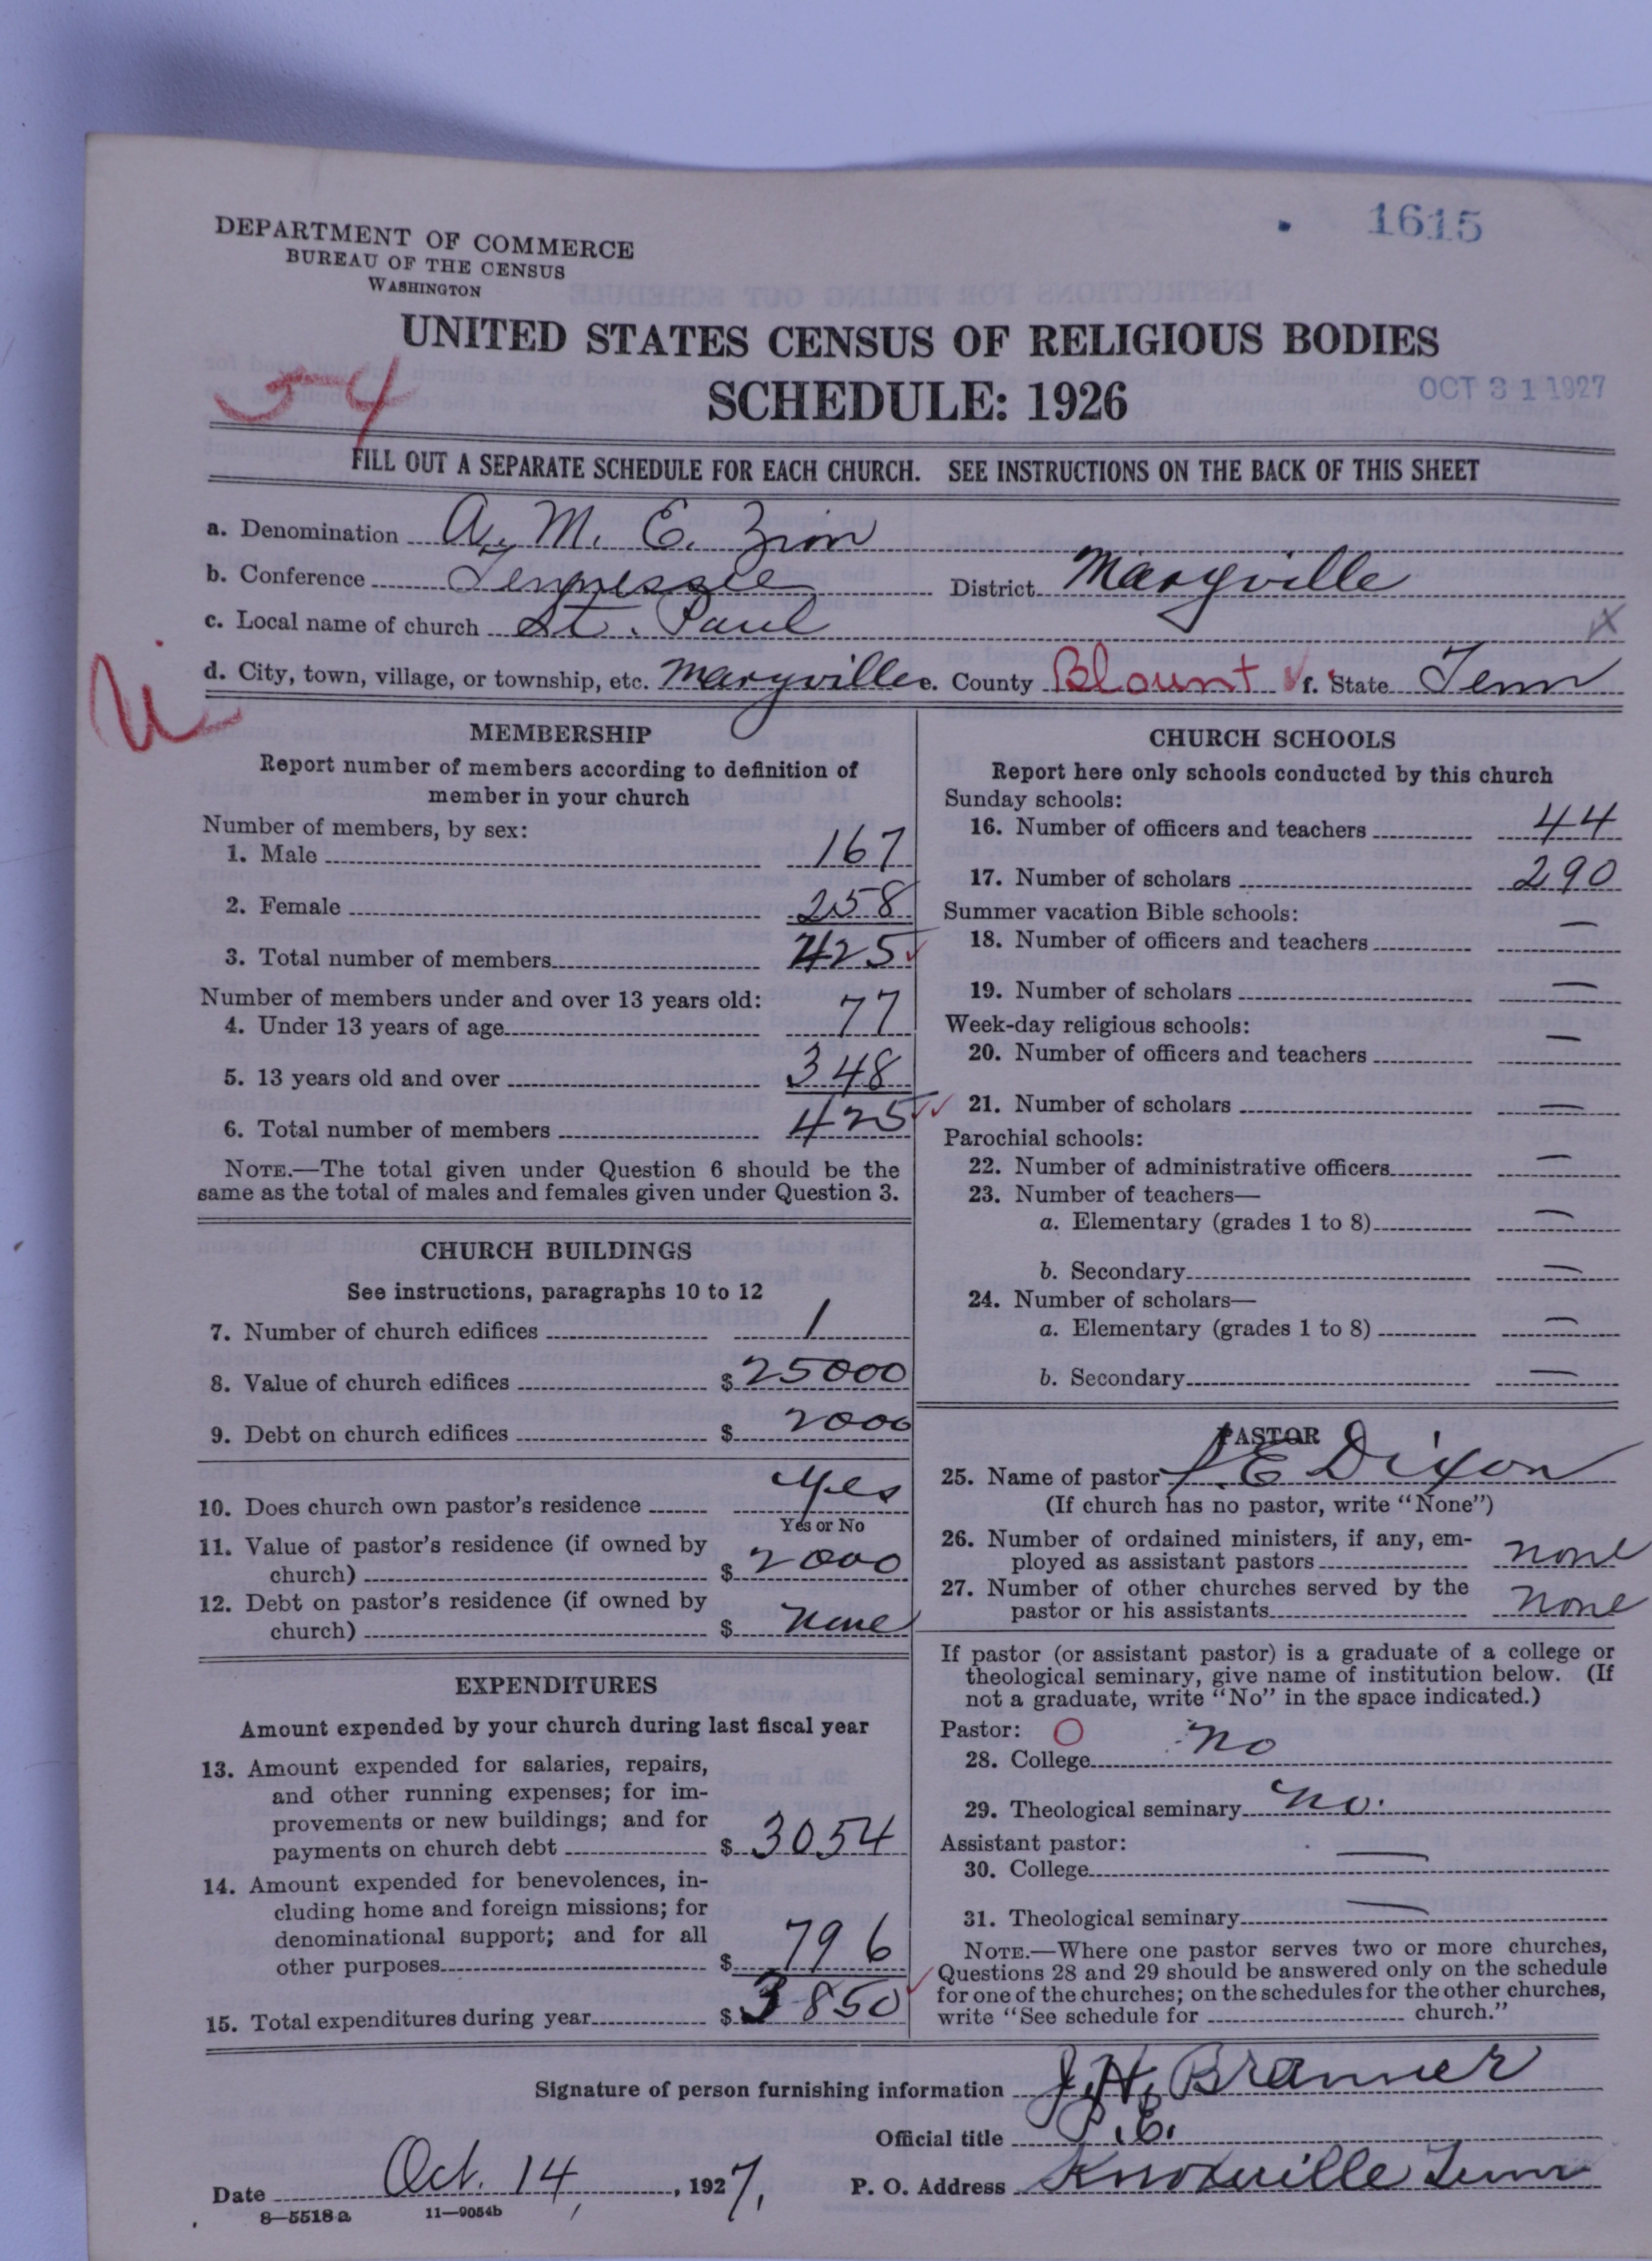 1615
DEPARTMENT OF COMMERCE
BUREAU OF THE CENSUS
WASHINGTON
UNITED STATES CENSUS OF RELIGIOUS BODIES
54
SCHEDULE: 1926
OCT 31 1927
FILL OUT A SEPARATE SCHEDULE FOR EACH CHURCH. SEE INSTRUCTIONS ON THE BACK OF THIS SHEET
a. Denomination A. M. E. Zion
b. Conference Tennessee District Maryville
c. Local name of church St. Paul
d. City, town, village, or township, etc. Maryville e. County Blount f. State Tenn
MEMBERSHIP
Report number of members according to definition of
member in your church
Number of members, by sex:
1. Male 167
2. Female 258
3. Total number of members 425
Number of members under and over 13 years old:
4. Under 13 years of age 77
5. 13 years old and over 348
6. Total number of members 425
NOTE.—The total given under Question 6 should be the
same as the total of males and females given under Question 3.
CHURCH BUILDINGS
See instructions, paragraphs 10 to 12
7. Number of church edifices 1
8. Value of church edifices $ 25000
9. Debt on church edifices $ 2000
10. Does church own pastor's residence yes
Yes or No
11. Value of pastor's residence (if owned by
church) $ 2000
12. Debt on pastor's residence (if owned by
church) $ none
EXPENDITURES
Amount expended by your church during last fiscal year
13. Amount expended for salaries, repairs,
and other running expenses; for im-
provements or new buildings; and for
payments on church debt $ 3054
14. Amount expended for benevolences, in-
cluding home and foreign missions; for
denominational support; and for all
other purposes $ 796
15. Total expenditures during year $ 3850
CHURCH SCHOOLS
Report here only schools conducted by this church
Sunday schools:
16. Number of officers and teachers 44
17. Number of scholars 290
Summer vacation Bible schools:
18. Number of officers and teachers —
19. Number of scholars —
Week-day religious schools:
20. Number of officers and teachers —
21. Number of scholars —
Parochial schools:
22. Number of administrative officers —
23. Number of teachers—
a. Elementary (grades 1 to 8) —
b. Secondary —
24. Number of scholars—
a. Elementary (grades 1 to 8) —
b. Secondary —
PASTOR
25. Name of pastor E Dixon
(If church has no pastor, write "None")
26. Number of ordained ministers, if any, em-
ployed as assistant pastors none
27. Number of other churches served by the
pastor or his assistants none
If pastor (or assistant pastor) is a graduate of a college or
theological seminary, give name of institution below. (If
not a graduate, write "No" in the space indicated.)
Pastor: O
28. College no
29. Theological seminary no.
Assistant pastor:
30. College —
31. Theological seminary —
NOTE.—Where one pastor serves two or more churches,
Questions 28 and 29 should be answered only on the schedule
for one of the churches; on the schedules for the other churches,
write "See schedule for church."
Signature of person furnishing information J. H. Branner
Official title P. E.
Date Oct. 14, 1927, P. O. Address Knoxville Tenn
8—5518a 11—9054b